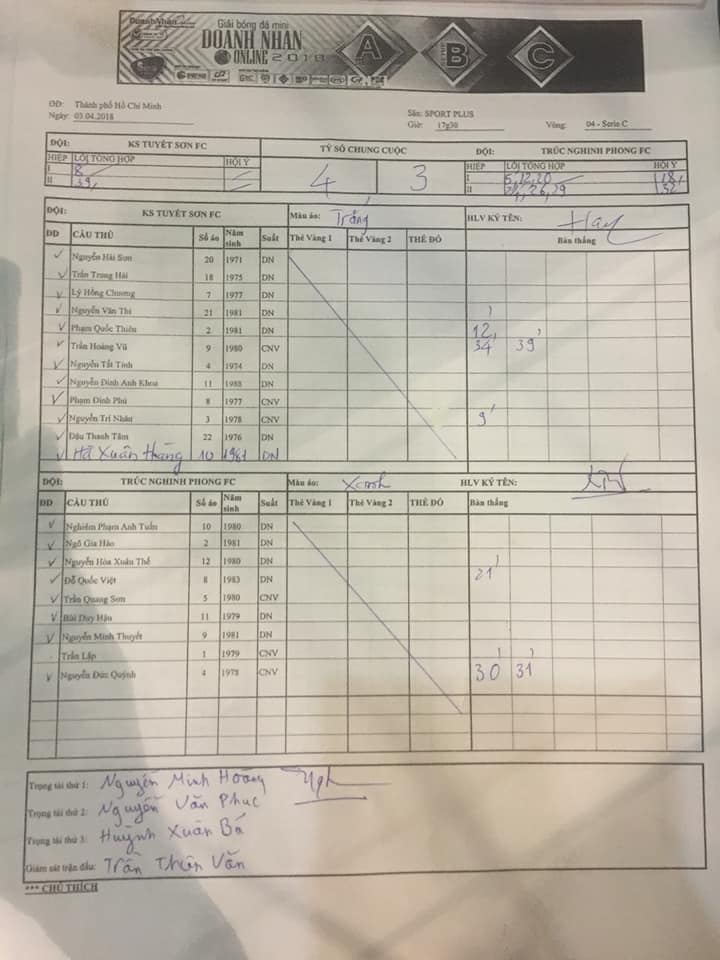 DoanhNhan
Giải bóng đá mini
DOANH NHÂN
ONLINE 2018
A
B
C
ĐĐ: Thành phố Hồ Chí Minh
Sân: SPORT PLUS
Ngày: 03.04.2018
Giờ: 17g30
Vòng: 04 - Serie C
ĐỘI: KS TUYẾT SƠN FC
TỶ SỐ CHUNG CUỘC
ĐỘI: TRÚC NGHINH PHONG FC
HIỆP LỖI TỔNG HỢP HỘI Ý
4 3
HIỆP LỖI TỔNG HỢP HỘI Ý
I 8
I 5, 12, 20 18,
II 39,
II 26, 29 32
ĐỘI: KS TUYẾT SƠN FC Màu áo: Trắng HLV KÝ TÊN:
ĐD CẦU THỦ Số áo Năm sinh Suất Thẻ Vàng 1 Thẻ Vàng 2 THẺ ĐỎ Bàn thắng
✓ Nguyễn Hải Sơn 20 1971 DN
✓ Trần Trung Hải 18 1975 DN
✓ Lý Hồng Chương 7 1977 DN
✓ Nguyễn Văn Thi 21 1981 DN
✓ Phạm Quốc Thiên 2 1981 DN 12,
✓ Trần Hoàng Vũ 9 1980 CNV 34 39'
✓ Nguyễn Tất Tính 4 1974 DN
✓ Nguyễn Đình Anh Khoa 11 1988 DN
✓ Phạm Đình Phú 8 1977 CNV
✓ Nguyễn Trí Nhân 3 1978 CNV 9'
✓ Đậu Thanh Tâm 22 1976 DN
✓ Hà Xuân Thắng 10 1981 DN
ĐỘI: TRÚC NGHINH PHONG FC Màu áo: Xanh HLV KÝ TÊN:
ĐD CẦU THỦ Số áo Năm sinh Suất Thẻ Vàng 1 Thẻ Vàng 2 THẺ ĐỎ Bàn thắng
✓ Nghiêm Phạm Anh Tuấn 10 1980 DN
✓ Ngô Gia Hào 2 1981 DN
✓ Nguyễn Hòa Xuân Thế 12 1980 DN
✓ Đỗ Quốc Việt 8 1983 DN 21'
✓ Trần Quang Sơn 5 1980 CNV
✓ Bùi Duy Hậu 11 1979 DN
✓ Nguyễn Minh Thuyết 9 1981 DN
Trần Lập 1 1979 CNV
✓ Nguyễn Đức Quỳnh 4 1978 CNV 30' 31'
Trọng tài thứ 1: Nguyễn Minh Hoàng
Trọng tài thứ 2: Nguyễn Văn Phúc
Trọng tài thứ 3: Huỳnh Xuân Bá
Giám sát trận đấu: Trần Thiện Văn
*** CHÚ THÍCH